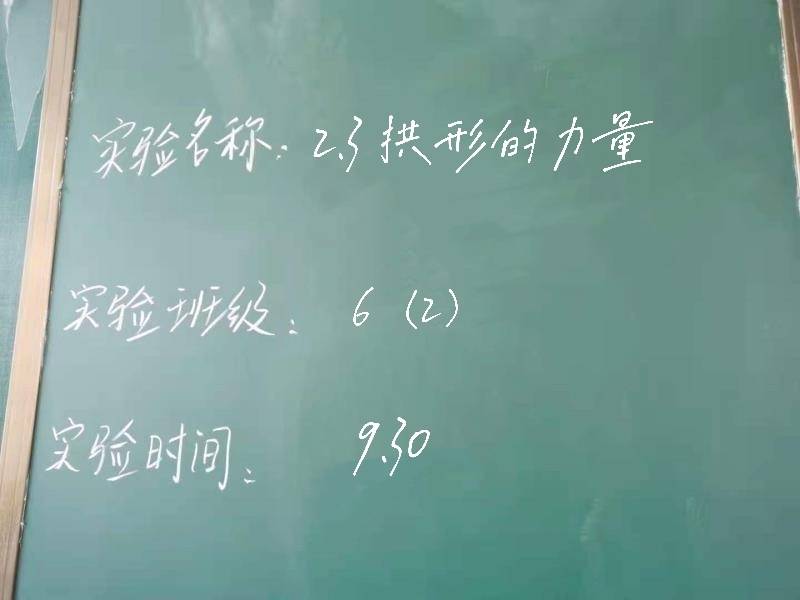 实验名称：2.3拱形的力量
实验班级：6（2）
实验时间：9.30